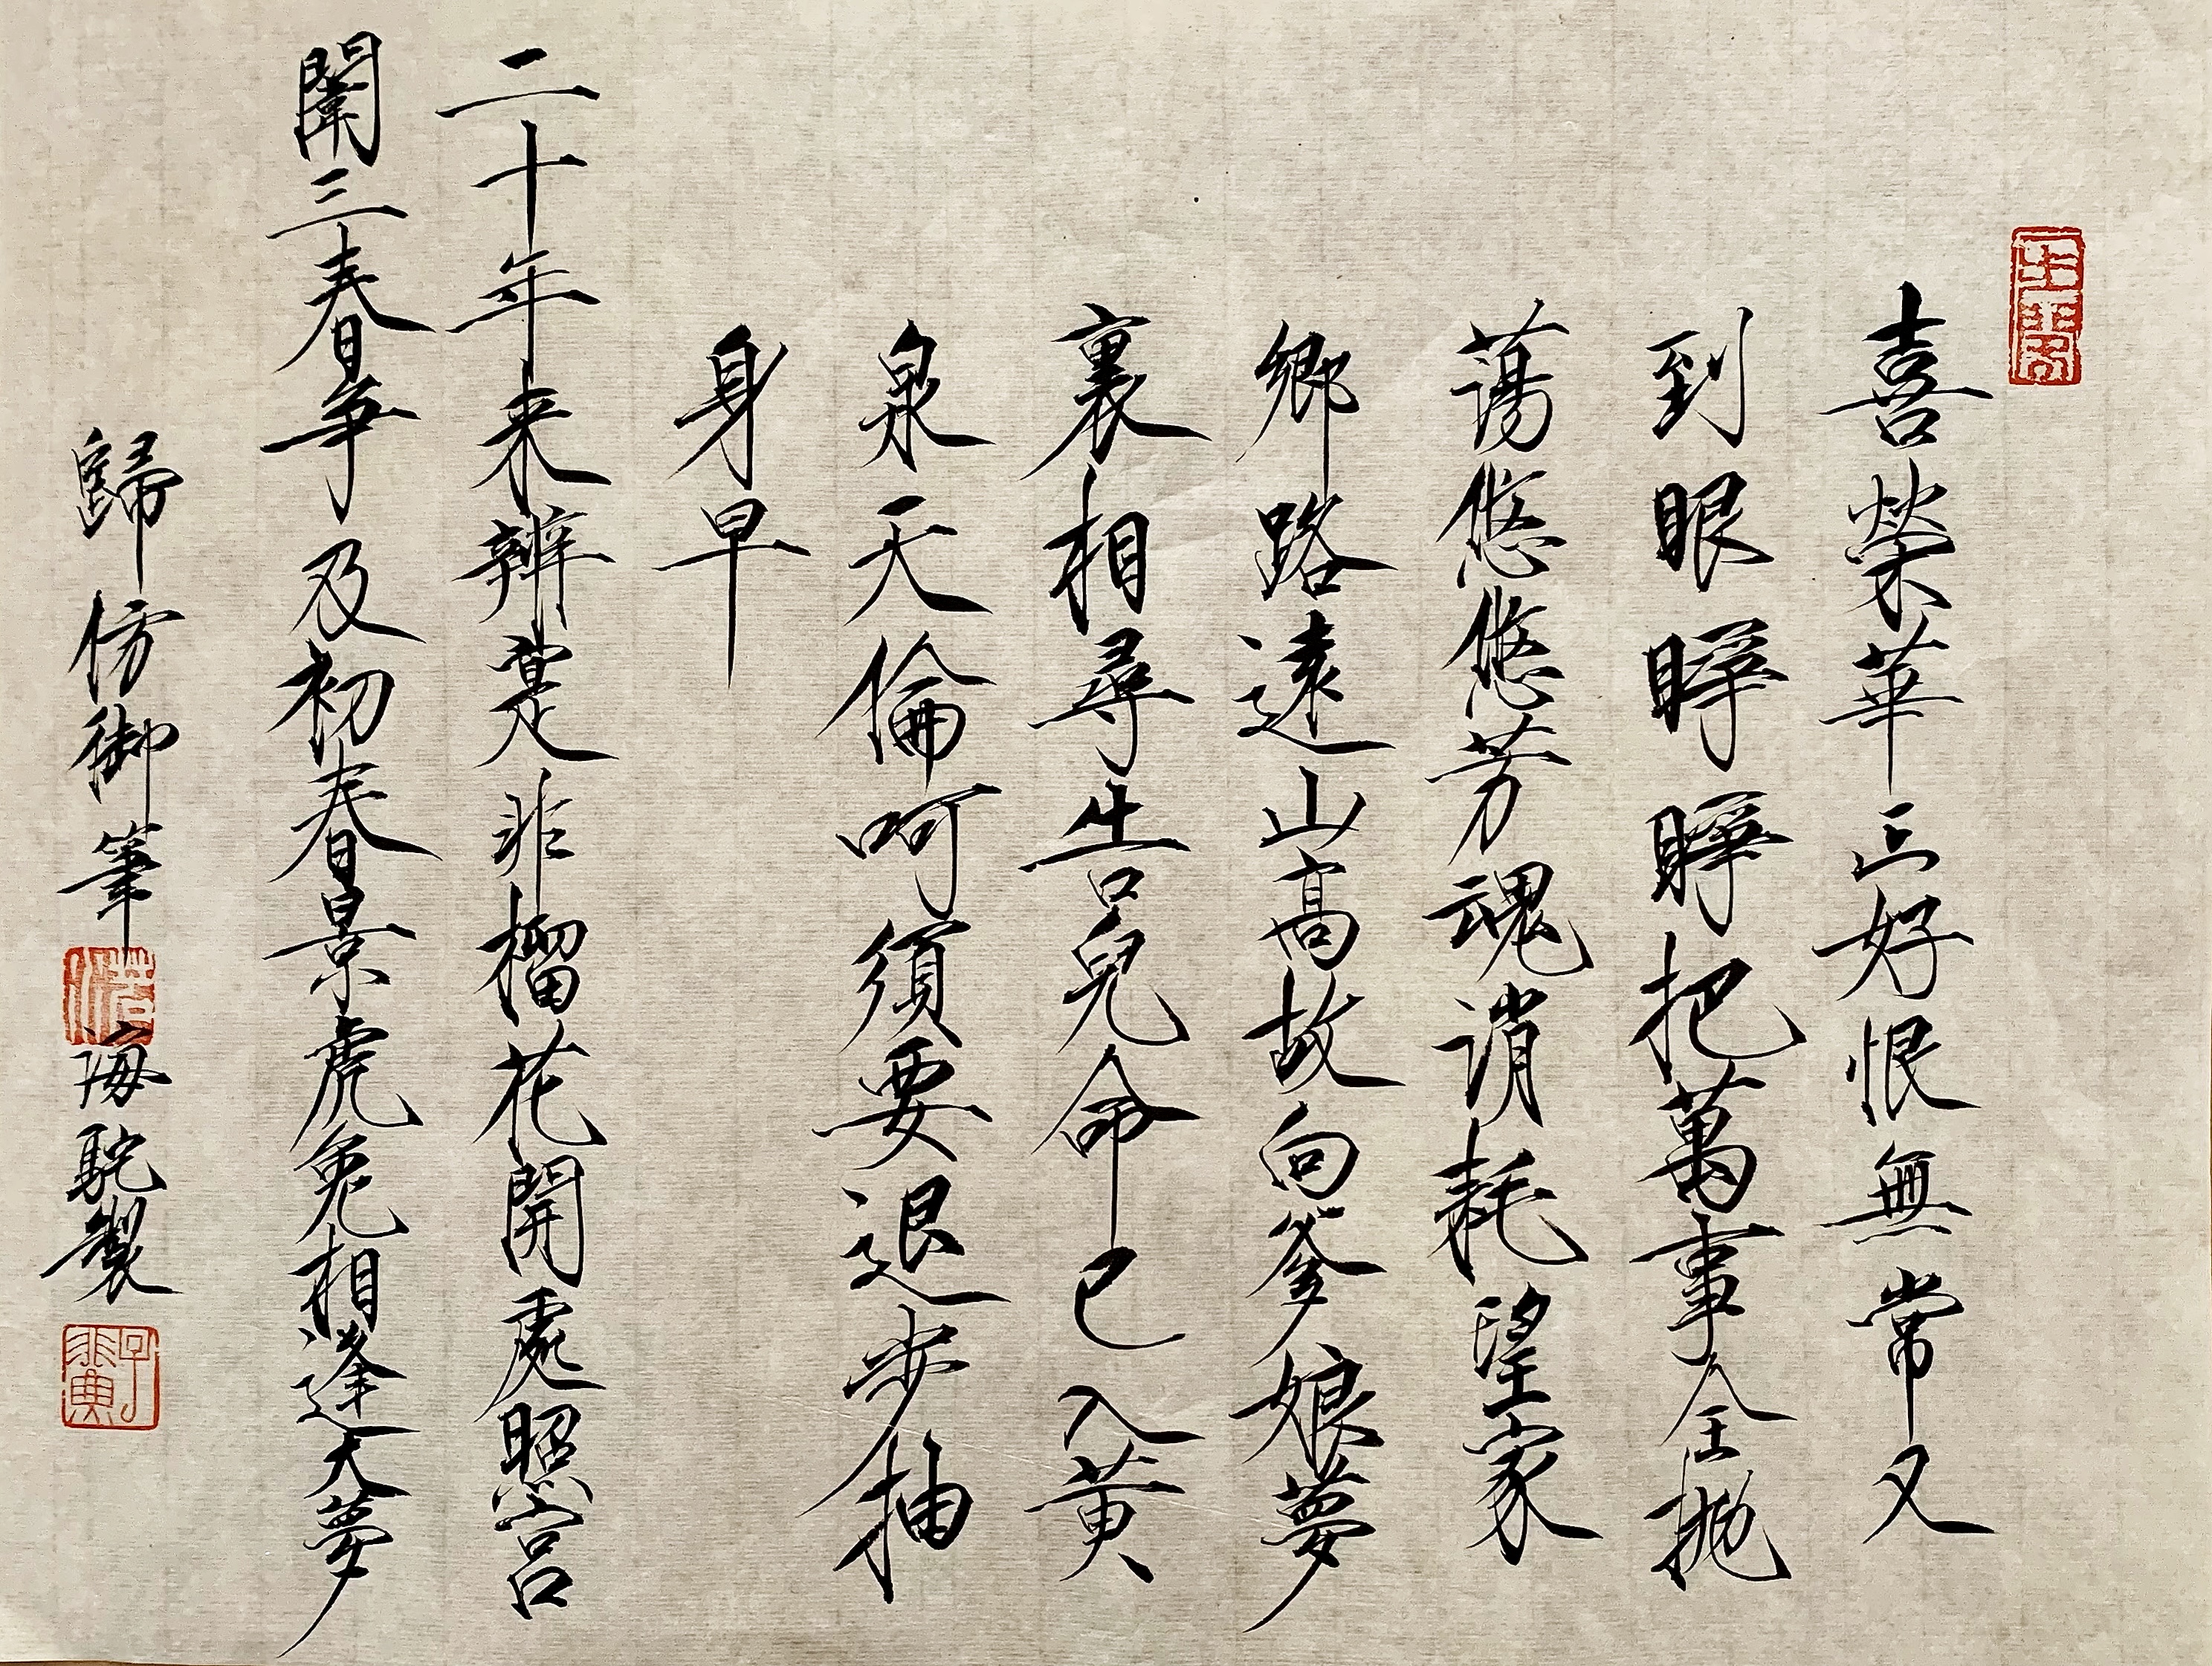 喜榮華正好恨無常又
到眼睜睜把萬事全拋
蕩悠悠芳魂消耗望家
鄉路遠山高故向爹娘夢
裏相尋告兒命已入黃
泉天倫呵須要退步抽
身早
二十年来辨是非榴花開處照宮
闈三春爭及初春景虎兔相逢大夢
歸仿御筆
海駝製